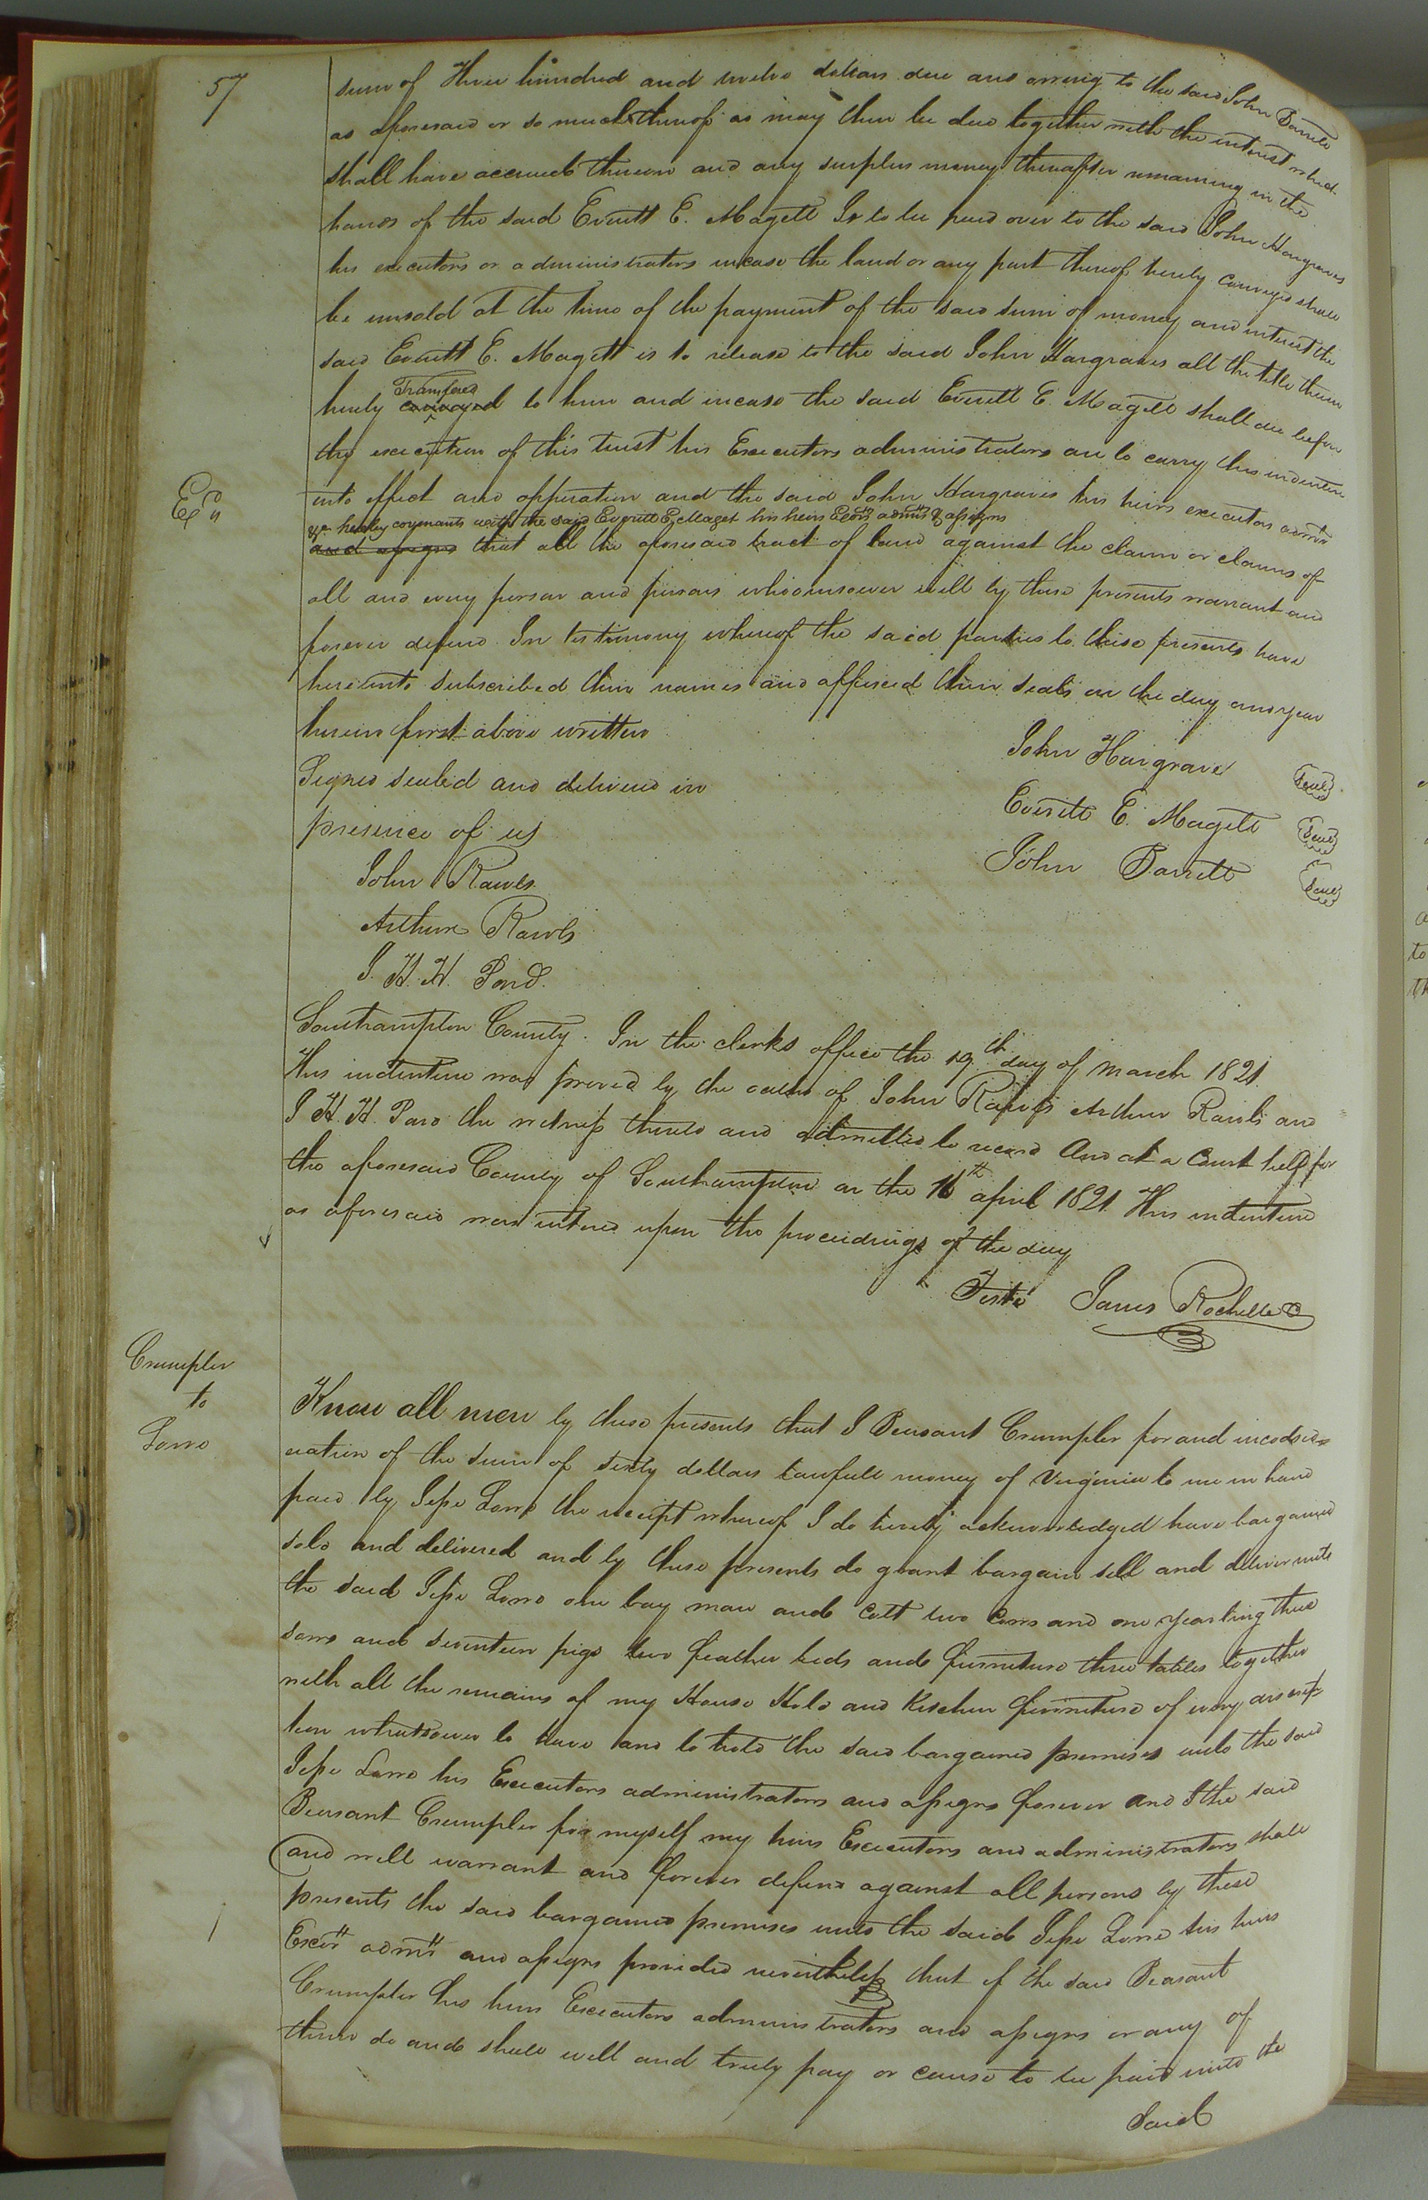 57
sum of Three hundred and twelve dollars due and owing to the said John Barrett
as aforesaid or so much thereof as may then be due together with the interest which
shall have accrued thereon and any surplus money thereafter remaining in the
hands of the said Everett E. Magett Is to be paid over to the said John Hargraves
his executors or administrators incase the land or any part thereof hereby conveyed shall
be unsold at the time of the payment of the said sum of money and interest the
said Everett E. Magett is to release to the said John Hargraves all the title therein
Transfered
hereby conveyed to him and incase the said Everett E. Magett shall die before
the execution of this trust his Executors administrators are to carry this indenture
Ex
into effect and opperation and the said John Hargraves his heirs executors admrs
&c hereby covenants with the said Everitt E. Maget his heirs Exors admrs & assigns
and assigns that all the aforesaid tract of land against the claim or claims of
all and every person and persons whomsoever will by these presents warrant and
forever defend In testimony whereof the said parties to these presents have
hereunto subscribed their names and affixed their seals on the day and year
herein first above written
Signed sealed and delivered in
presence of us
John Hargraves Seal
Everett E. Magett Seal
John Barrett Seal
John Rawls
Arthur Rawls
J. H. H. Pond.
Southampton County. In the clerks office the 19th day of March 1821
This indenture was proved by the oaths of John Rawls Arthur Rawls and
J H. H. Pond the witness thereto and admitted to record And at a Court held for
the aforesaid County of Southampton on the 16th april 1821 This indenture
as aforesaid was entered upon the proceedings of the day
Teste James Rochelle C
Crumpler
to
Lowe
Know all men by these presents that I Beasant Crumpler for and inconside=
eration of the sum of sixty dollars lawfull money of Virginia to me in hand
paid by Jesse Lowe the receipt whereof I do hereby acknowledged have bargained
sold and delivered and by these presents do grant bargain sell and deliver unto
the said Jesse Lowe one bay mare and colt two cows and one yearling three
sows and seventeen pigs two feather beds and furniture three tables together
with all the remains of my House Hold and Kitchen furniture of every descrip=
tion whatsoever to have and to hold the said bargained premises unto the said
Jesse Lowe his Executors administrators and assigns forever and I the said
Beasant Crumpler for myself my heirs Executors and administrators shall
and will warrant and forever defend against all persons by these
presents the said bargained premises unto the said Jesse Lowe his heirs
Exors admrs and assigns provided nevertheless that if the said Beasant
Crumpler his heirs Executors administrators and assigns or any of
them do and shall well and truly pay or cause to be paid unto the
said